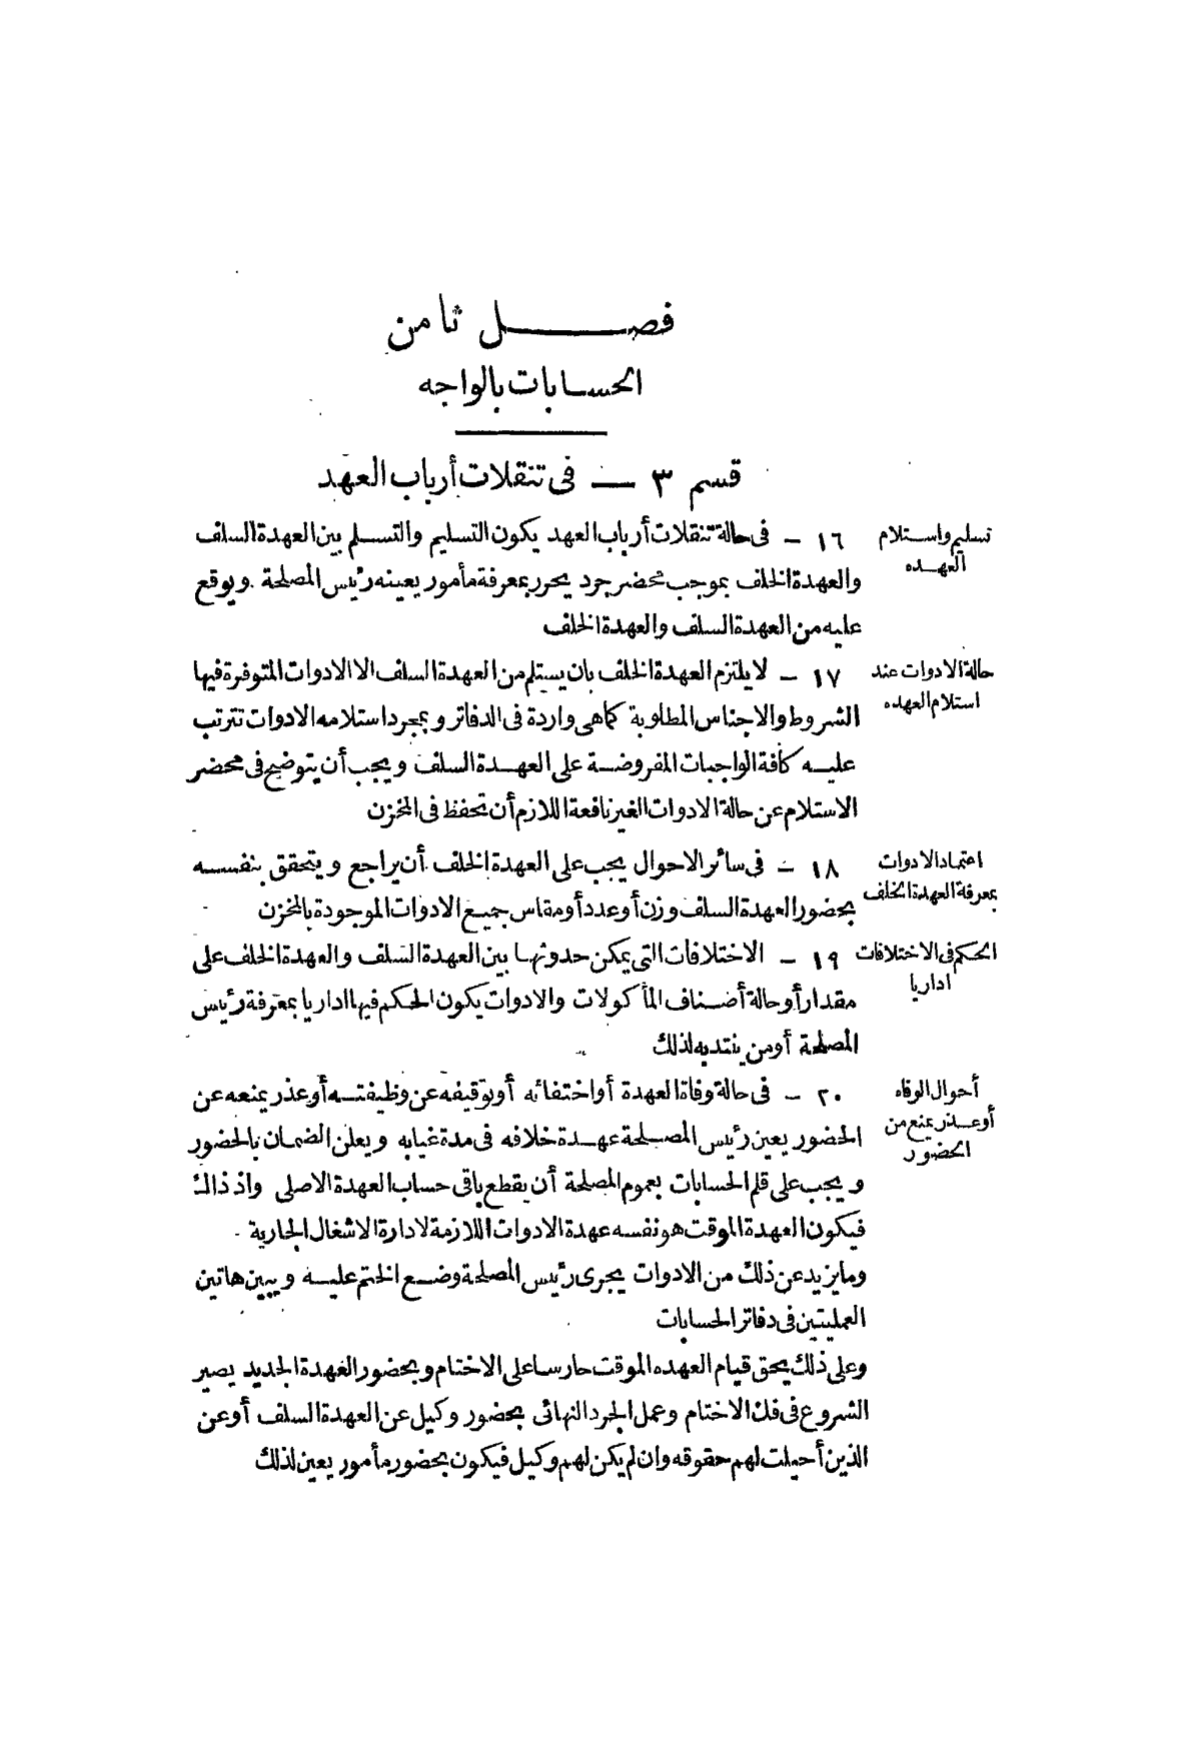 فصل ثامن
الحسابات بالواجه
قسم ٣ — فى تنقلات أرباب العهد
تسليم واستلام
العهده
١٦ — فى حالة تنقلات أرباب العهد يكون التسليم والتسلم بين العهدة السلف
والعهدة الخلف بموجب محضر جرد يحرر بمعرفة مأمور يعينه رئيس المصلحة ويوقع
عليه من العهدة السلف والعهدة الخلف
حالة الادوات عند
استلام العهده
١٧ — لا يلتزم العهدة الخلف بان يستلم من العهدة السلف الا الادوات المتوفرة فيها
الشروط والاجناس المطلوبة كماهى واردة فى الدفاتر وبمجرد استلامه الادوات تترتب
عليه كافة الواجبات المفروضة على العهدة السلف ويجب أن يتوضح فى محضر
الاستلام عن حالة الادوات الغير نافعة اللازم أن تحفظ فى المخزن
اعتماد الادوات
بمعرفة العهدة الخلف
١٨ — فى سائر الاحوال يجب على العهدة الخلف أن يراجع ويتحقق بنفسه
بحضور العهدة السلف وزن أو عدد أو مقاس جميع الادوات الموجودة بالمخزن
الحكم فى الاختلافات
اداريا
١٩ — الاختلافات التى يمكن حدوثها بين العهدة السلف والعهدة الخلف على
مقدار أو حالة أصناف المأكولات والادوات يكون الحكم فيها اداريا بمعرفة رئيس
المصلحة أو من ينتدبه لذلك
أحوال الوفاه
أو عذر يمنع من
الحضور
٢٠ — فى حالة وفاة العهدة أو اختفائه أو توقيفه عن وظيفته أو عذر يمنعه عن
الحضور يعين رئيس المصلحة عهدة خلافه فى مدة غيابه ويعلن الضمان بالحضور
ويجب على قلم الحسابات بعموم المصلحة أن يقطع باقى حساب العهدة الاصلى واذ ذاك
فيكون العهدة الموقت هو نفسه عهدة الادوات اللازمة لادارة الاشغال الجارية
وما يزيد عن ذلك من الادوات يجرى رئيس المصلحة وضع الختم عليه ويبين هاتين
العمليتين فى دفاتر الحسابات
وعلى ذلك يحق قيام العهده الموقت حارسا على الاختام وبحضور العهدة الجديد يصير
الشروع فى فك الاختام وعمل الجرد النهائى بحضور وكيل عن العهدة السلف أو عن
الذين أحيلت لهم حقوقه وان لم يكن لهم وكيل فيكون بحضور مأمور يعين لذلك